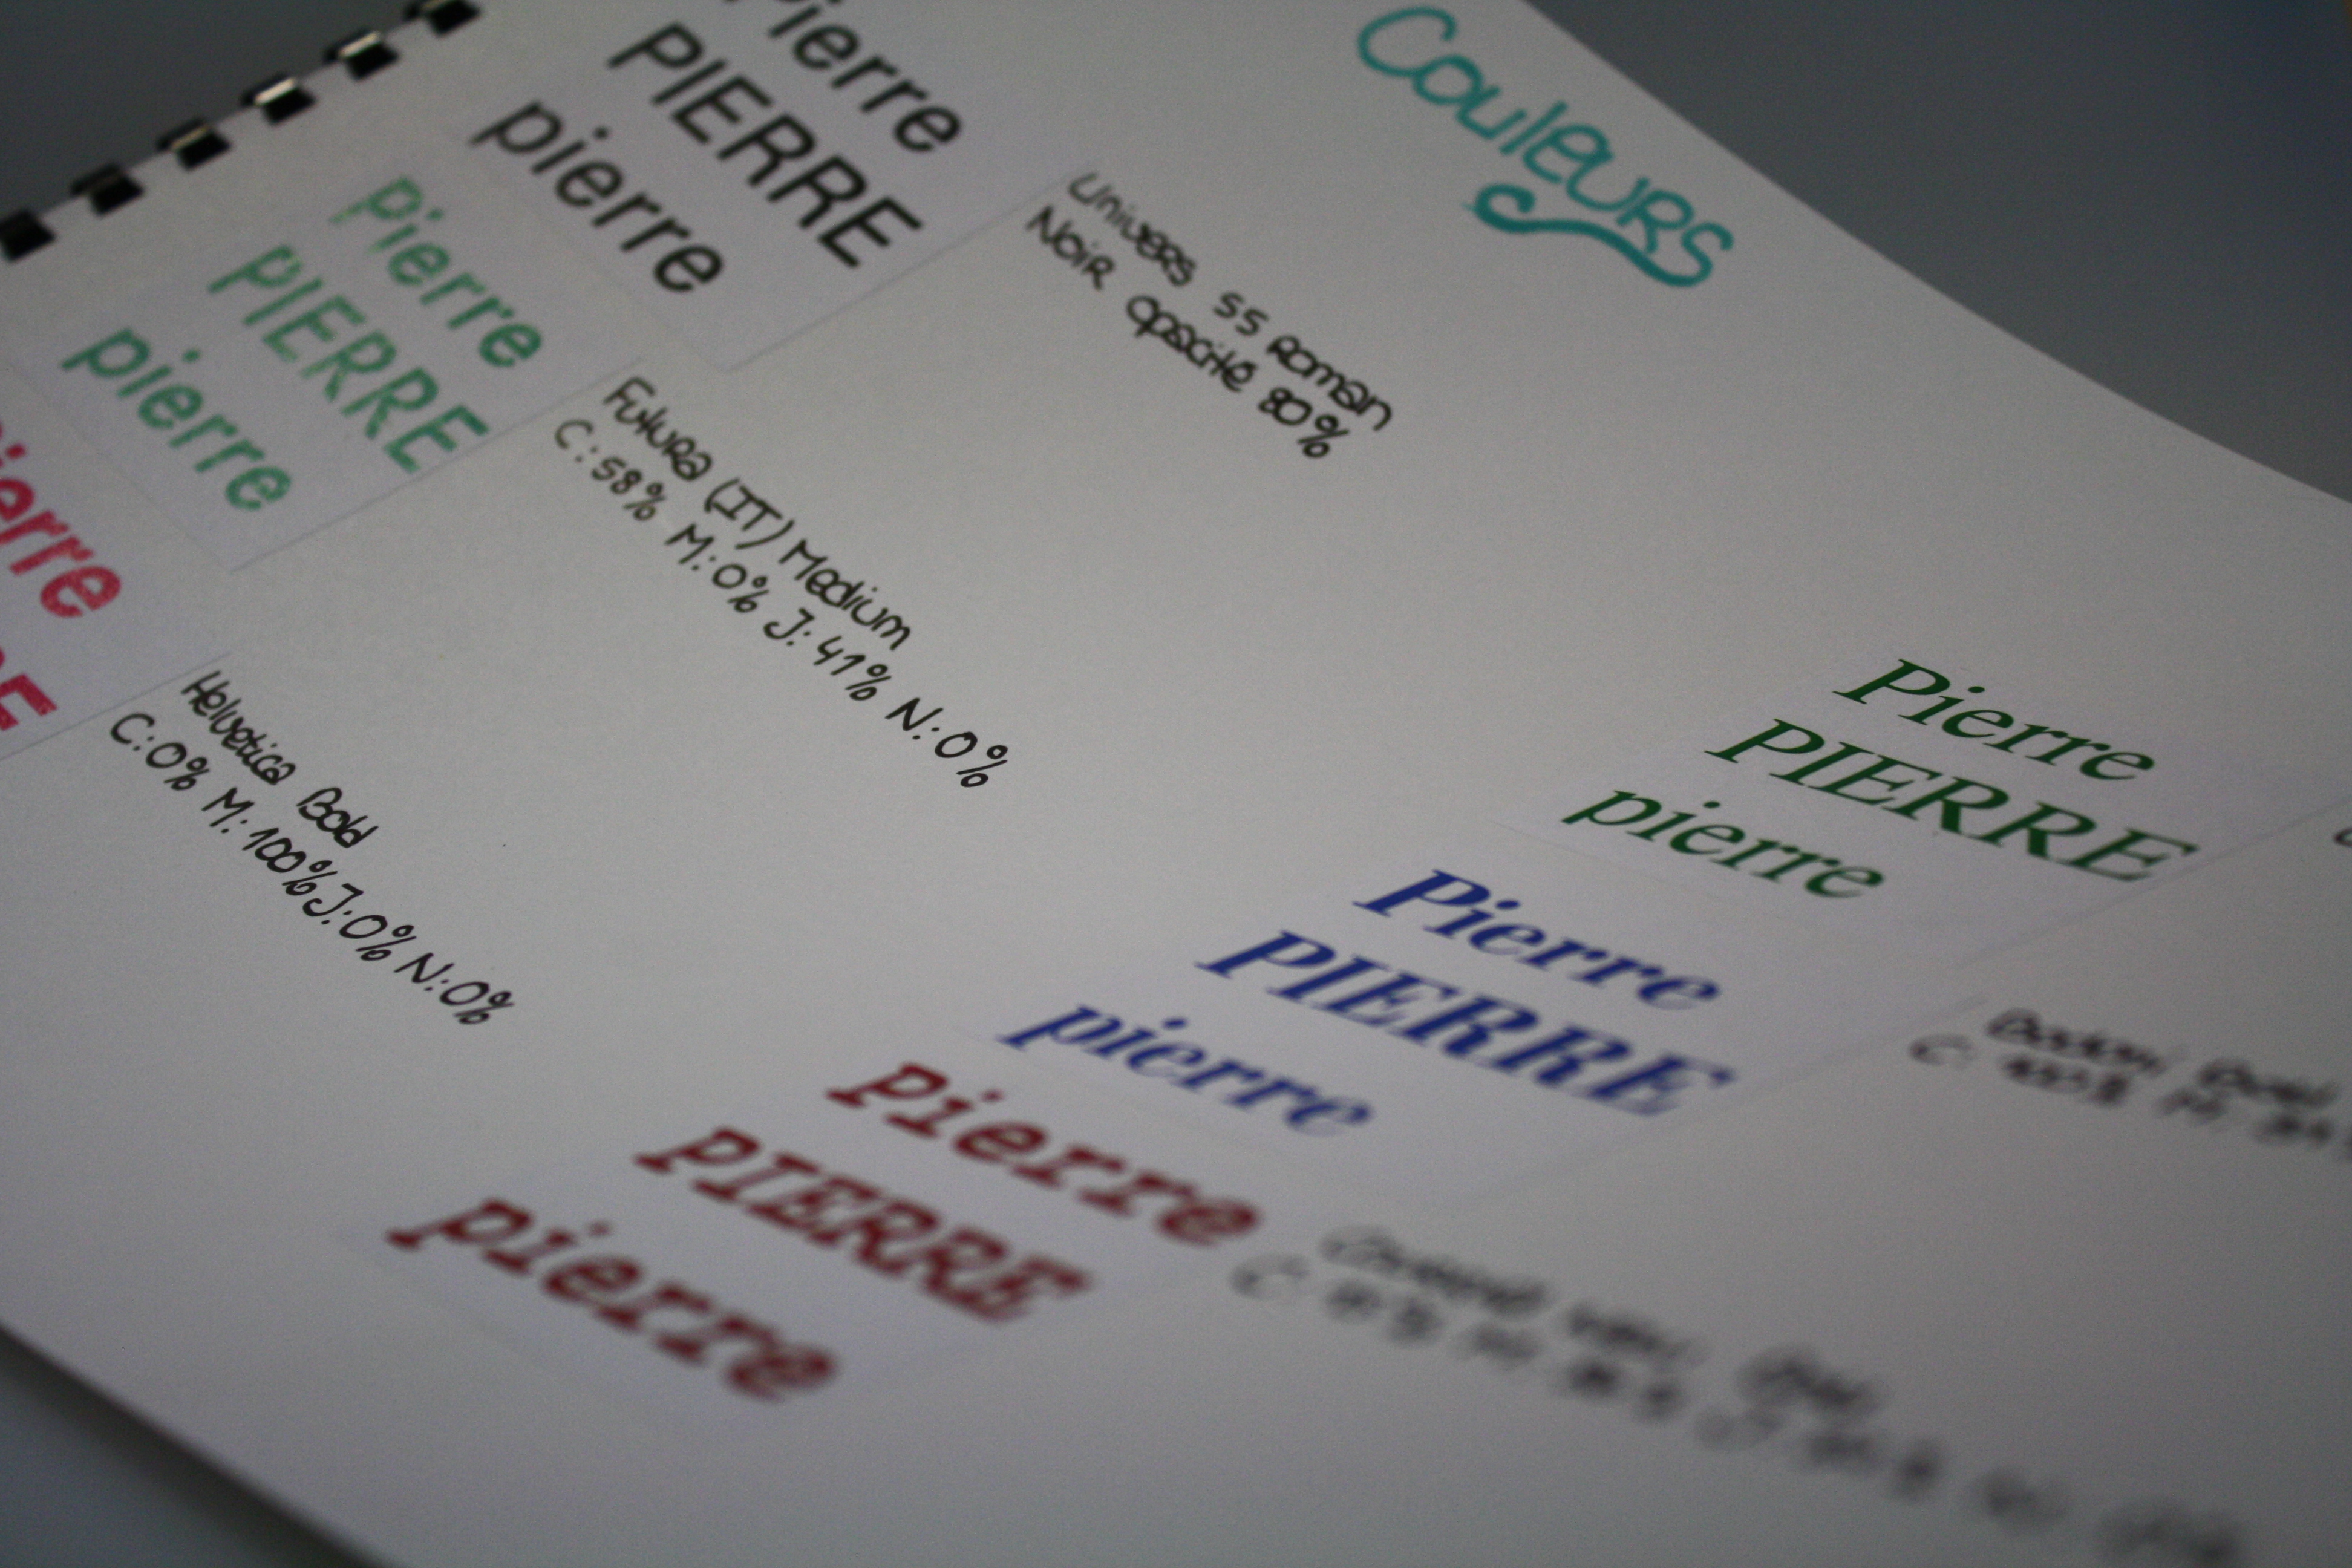 Couleurs
Pierre
PIERRE
pierre
Univers 55 Roman
Noir opacité 80%
Pierre
PIERRE
pierre
Futura (IT) Medium
C:58% M:0% J:41% N:0%
Pierre
Helvetica Bold
C:0% M:100% J:0% N:0%
Pierre
PIERRE
pierre
Pierre
PIERRE
pierre
C: 100%
Pierre
PIERRE
pierre